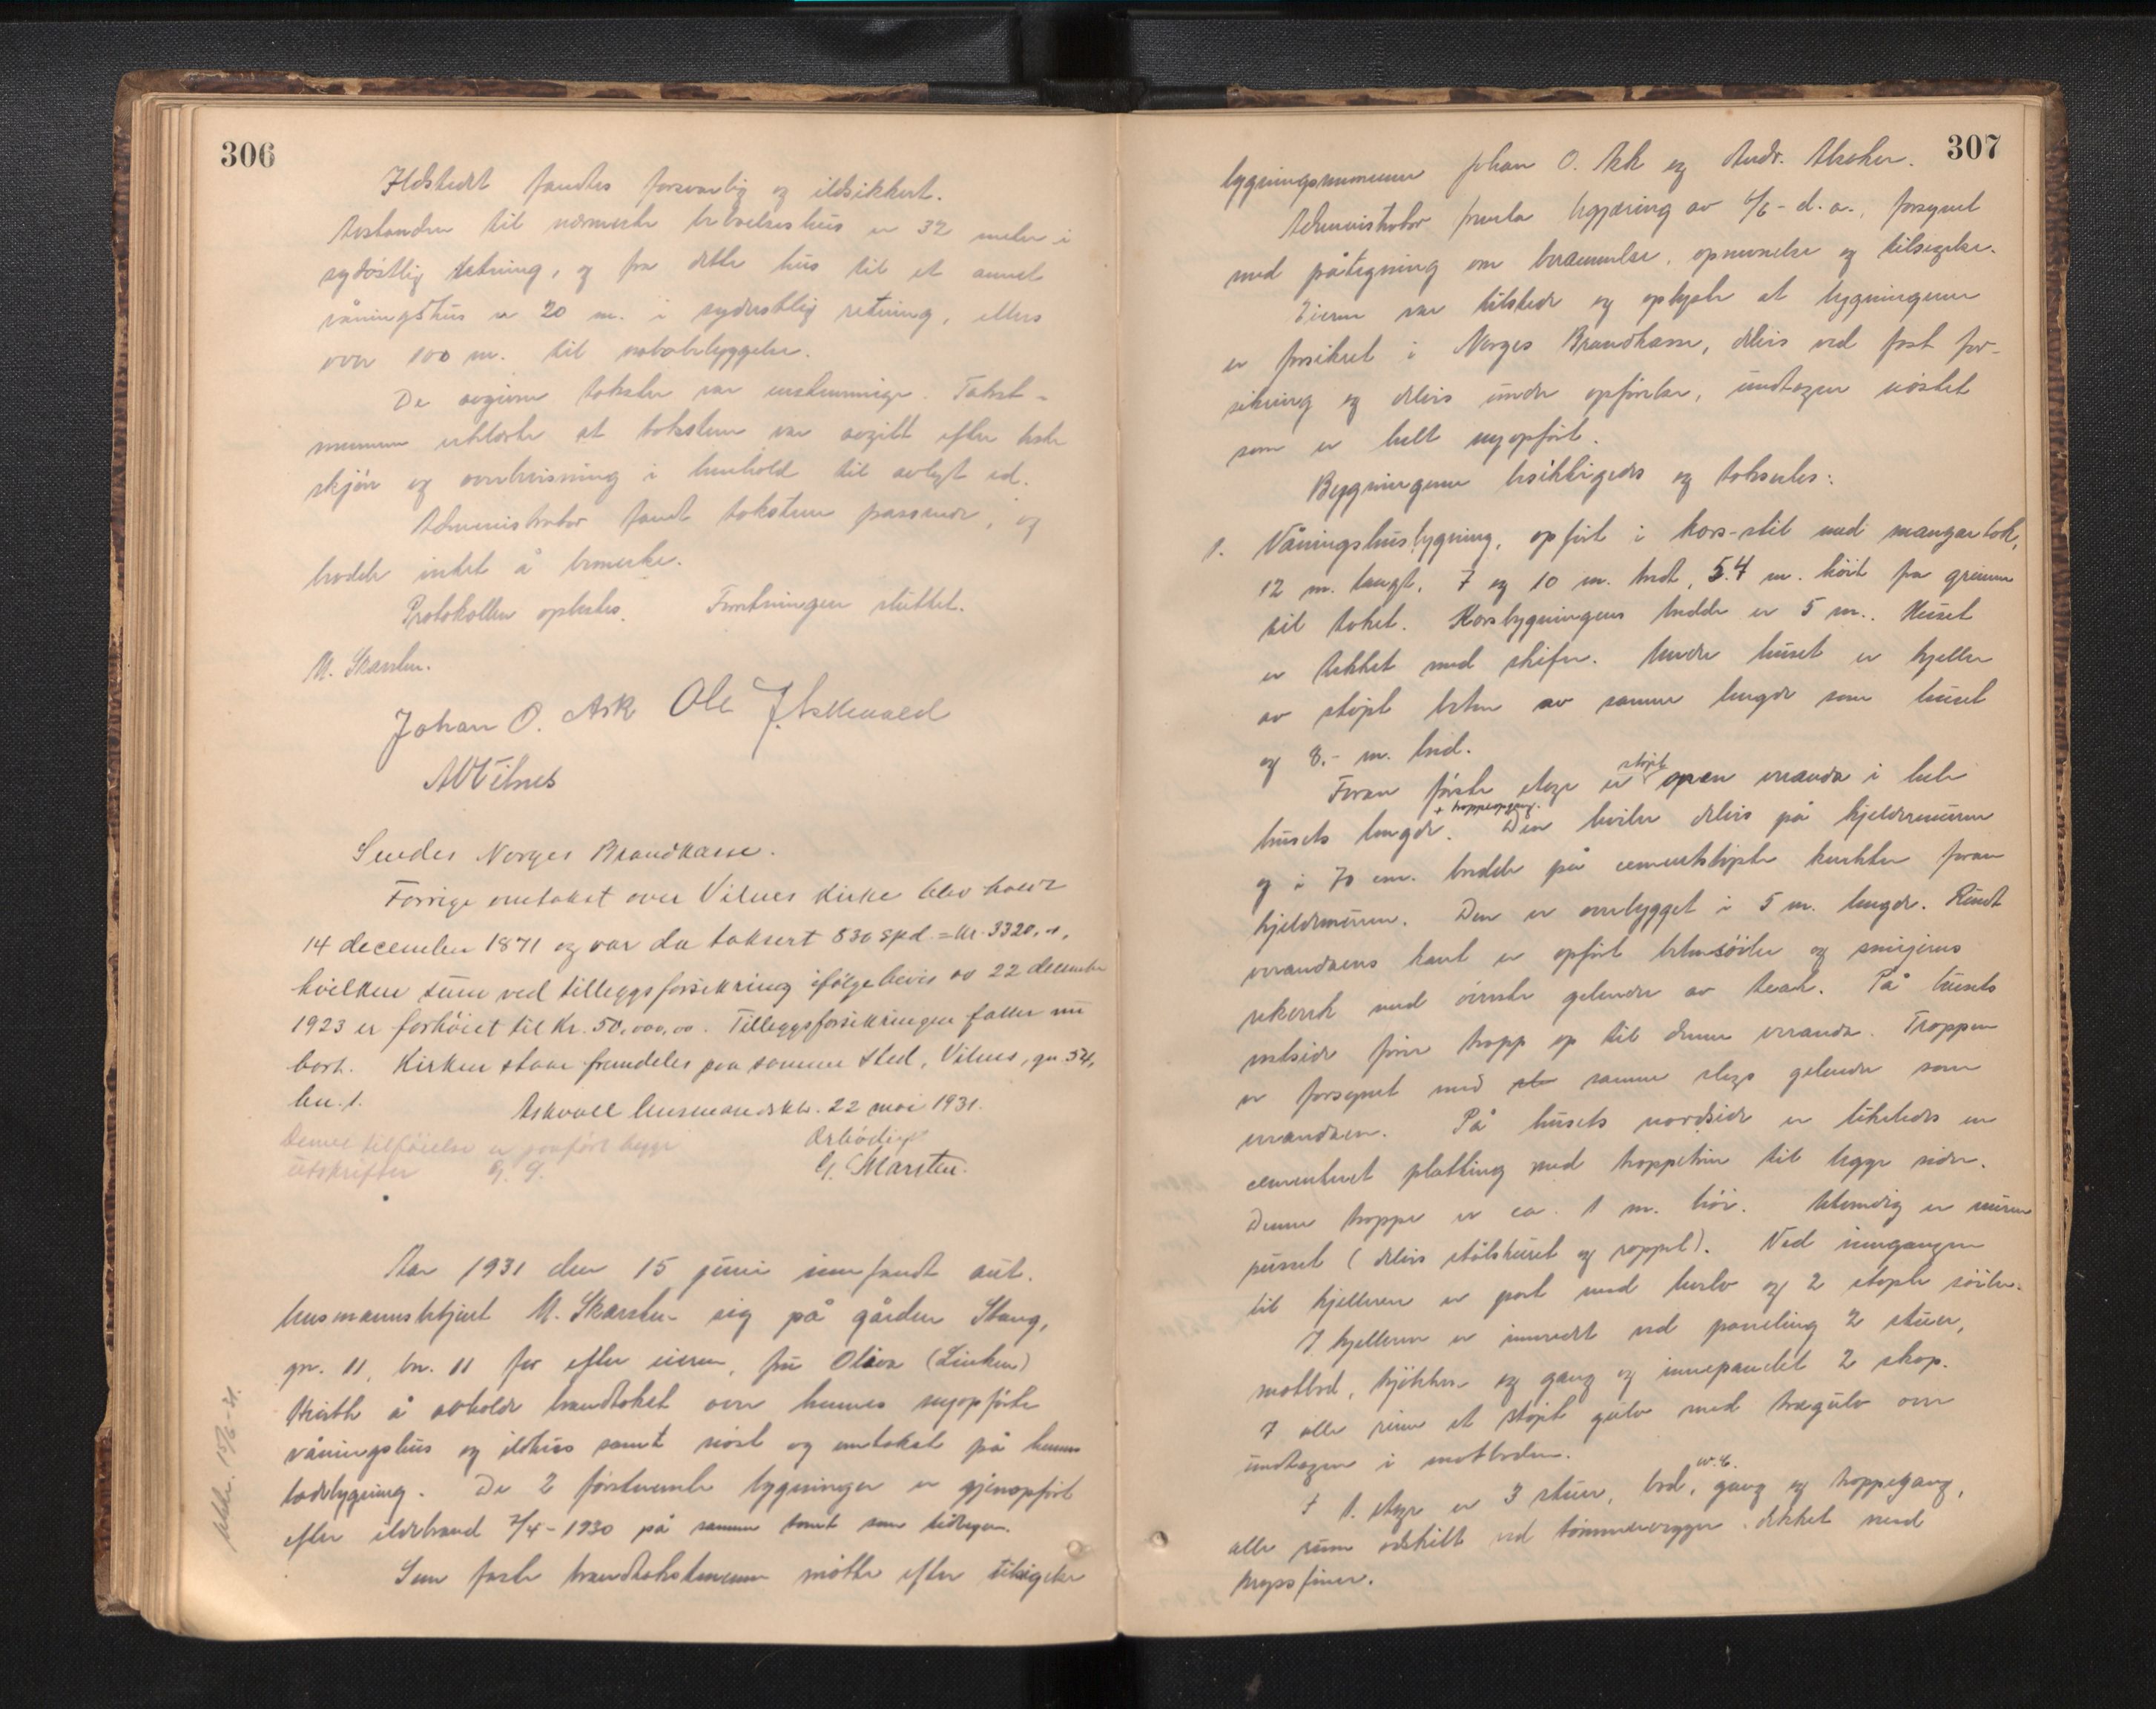 306
Ildstedet fandtes forsvarlig og ildsikkert.
Avstanden til nærmeste beboelseshus er 32 meter i
sydøstlig retning, og fra dette hus til et annet
våningshus er 20 m. i sydvestlig retning, ellers
over 100 m. til nabobebyggelse.
De avgivne takster var enstemmige. Takst-
mennene erklærte at taksten var avgitt efter beste
skjøn og overbevisning i henhold til avlagt ed.
Administrator fandt taksten passende, og
hadde intet å bemerke.
Protokollen oplestes. Forretningen sluttet.
M. Skarsten.
Johan O. Ask Ole J. Askevold
A Vilnes
Sendes Norges Brandkasse.
Forrige omtakst over Vilnes kirke blev holdt
14 december 1871 og var da taksert 830 Spd. = kr. 3320,
hvilken sum ved tilleggsforsikring ifölge bevis av 22 december
1923 er forhöiet til kr. 50.000,00. Tilleggsforsikringen faller nu
bort. Kirken staar fremdeles paa samme sted, Vilnes, gn. 54,
bn. 1.
Askvoll lensmandskt. 22 mai 1931.
Denne tilföielse er paaført begge
utskrifter G. S.
Ærbödigst
G. Skarsten.
Aar 1931 den 15 juni innfandt aut.
lensmannsbetjent M. Skarsten sig på gården Stang,
gn. 11, bn. 11 for efter eieren, fru Oliva (Linken)
å avholde brandtakst over hennes nyopförte
våningshus og ildhus samt nöst og omtakst på hennes
ladebygning. De 2 förstnevnte bygninger er gjenopfört
efter ildebrand 7/4-1930 på samme tomt som tidligere.
Som faste brandtakstmenn mötte efter tilsigelse
15/6-31.
307
bygningsmennene Johan O. Ask og Andr.
Administrator fremla begjæring av 6/6- d.a., forsynet
med påtegning om berammelse, opnevnelse og tilsigelse.
Eieren var tilstede og oplyste at bygningene
er forsikret i Norges Brandkasse, delvis ved fast for-
sikring og delvis under opförelse, undtagen nöstet
som er helt nyopfört.
Bygningene besiktigedes og taksertes:
1. Våningshusbygning, opfört i kors-stil med mansartak,
12 m. langt, 7 og 10 m. bredt, 5.4 m. höit fra grunnen
til taket. Korsbygningens bredde er 5 m. Huset
er tekket med skifer. Under huset er kjeller
av stöpt beton av samme lengde som huset
og 8.- m. bred.
Foran förste etage er stöpt open veranda i hele
husets lengde. + trappeopgang. Den hviler delvis på kjeldermuren
og i 70 cm. bredde på cementstöpte foran
kjeldermuren. Den er overbygget i 5 m. lengde. Rundt
verandaens kant er opfört betonsöiler og smijerns
rekverk med överste gelender av teak. På husets
vestside förer trapp op til denne veranda. Trappen
er forsynet med samme slags gelender som
verandaen. På husets nordside er likeledes en
cementeret platting med trappetrin til begge sider.
Denne trappe er ca. 1 m. höi. Utvendig er muren
pusset (delvis stålskuret og rappet). Ved inngangen
til kjelleren er port med hvelv og 2 stöpte söiler.
I kjelleren er innredet ved paneling 2 stuer,
matbod, kjökken og gang og innepanelet 2 skap.
I alle rum et stöpt gulv med tregulv over
undtagen i matboden.
I 1. etage er 3 stuer, bod, w.c. gang og trappegang,
alle rum adskilt ved tömmervegger dekket med
kryssfiner.